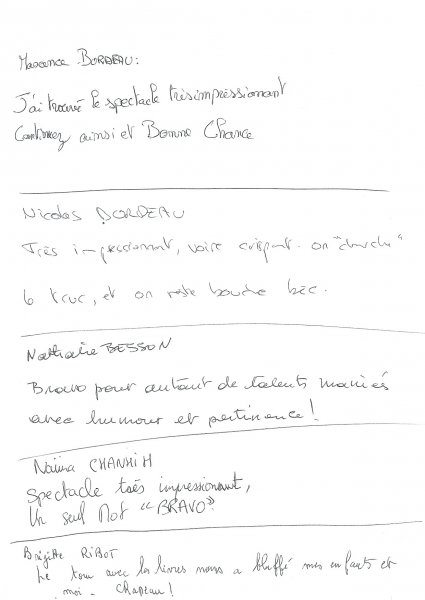 Maxence BORDEAU:
J'ai trouvé le spectacle très impressionant
Continuez ainsi et Bonne Chance
Nicolas BORDEAU
Très impressionnant, voire crispant. on "cherche"
le truc, et on reste bouche bée.
Nathalie BESSON
Bravo pour autant de talents maniés
avec humour et pertinence !
Naïma
Spectacle très impressionant,
Un seul Mot "BRAVO".
Brigitte RIBOT
Le tour avec les livres nous a bluffé mes enfants et
moi. Chapeau !